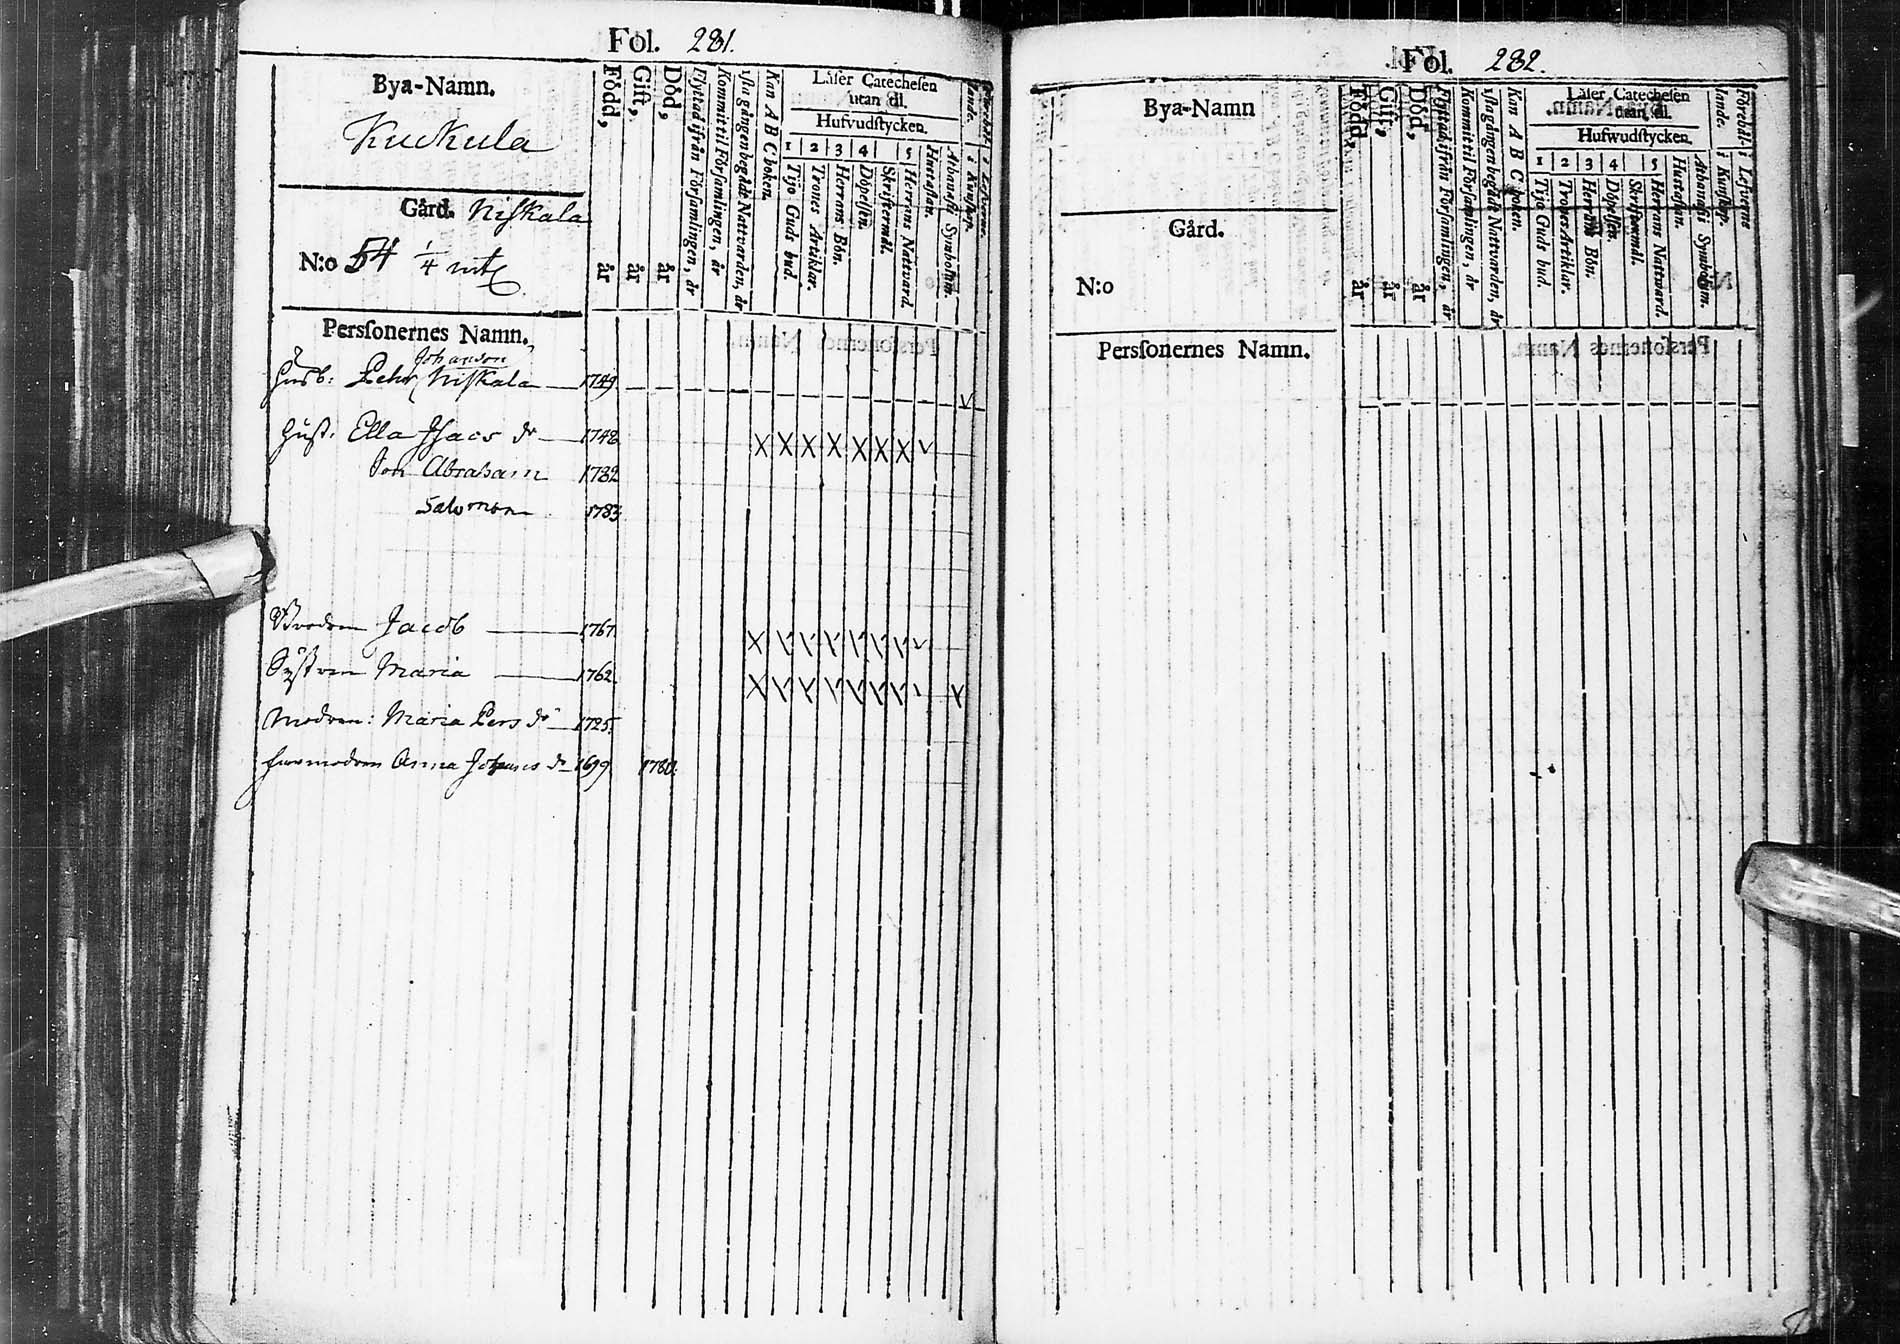 Fol. 281.
Bya-Namn.
Kuckula
Gård. Niskala
N:o 54 1/4 mtl
Född, år
Gift, år
Död, år
Flyttad ifrån Församlingen, år
Kommit til Församlingen, år
1sta gången begådt Nattvarden, år
Kan A B C boken.
Läser Catechesen
utan til.
Hufvudstycken.
1 2 3 4 5
Tijo Guds bud.
Trones Artiklar.
Herrans Bön.
Döpelsen.
Skriftermål.
Herrans Nattvard.
Hustaflan.
Athanasii Symbolum.
i Kunskap.
i Lefverne.
Personernes Namn.
Johanson
Husb: Pehr Niskala 1749
Hust. Ella Isacs dr 1748
Son Abraham 1782
Salomon 1783
Brodren Jacob 1767
Systren Maria 1762
Modren: Maria Pers dr 1725
Farmodren Anna Johans dr 1699 1780.
Fol. 282.
Bya-Namn
Gård.
N:o
Född, år
Gift, år
Död, år
Flyttad ifrån Församlingen, år
Kommit til Församlingen, år
1sta gången begådt Nattvarden, år
Kan A B C boken.
Läser Catechesen
utan til.
Hufwudstycken.
1 2 3 4 5
Tijo Guds bud.
Trones Artiklar.
Herrans Bön.
Döpelsen.
Skriftermål.
Herrans Nattward.
Hustaflan.
Athanasii Symbolum.
Förehållande.
i Kunskap.
i Lefverne
Personernes Namn.